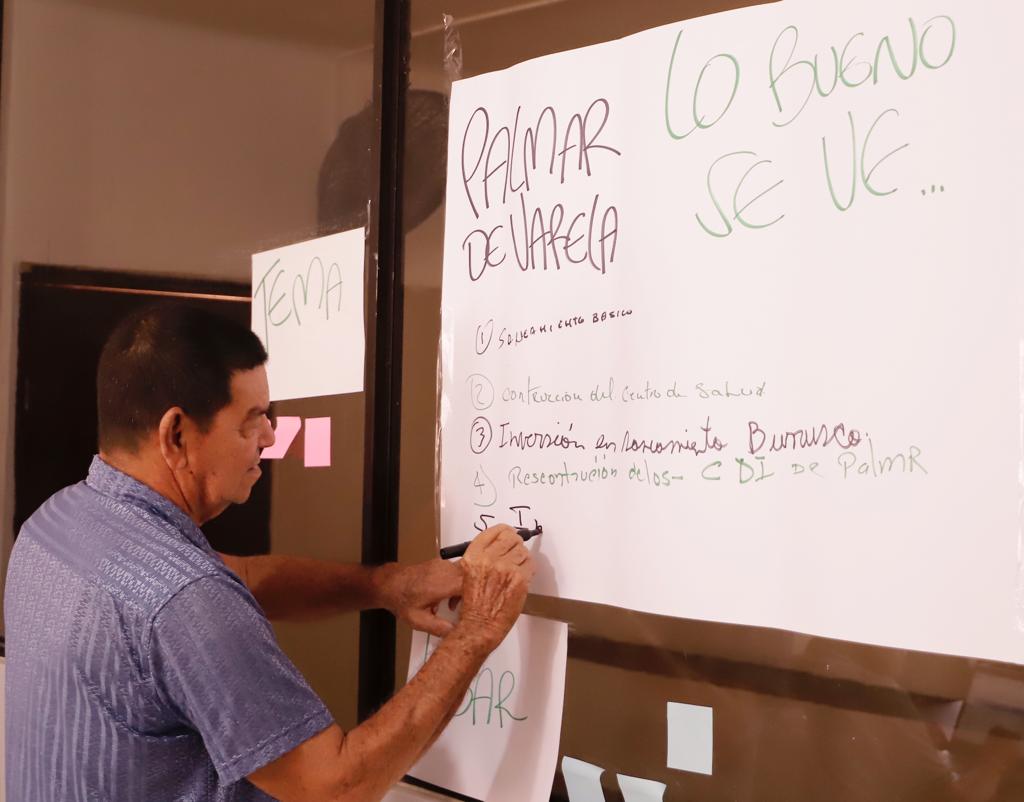 LO BUENO
SE VE...
PALMAR
DE VARELA
TEMA
① SANEAMIENTO BÁSICO
② Contrucción del Centro de Salud
③ Inversión en saneamiento Burrusco.
④ Rescontrución de los- CDI DE PalmR
5 In
DAR